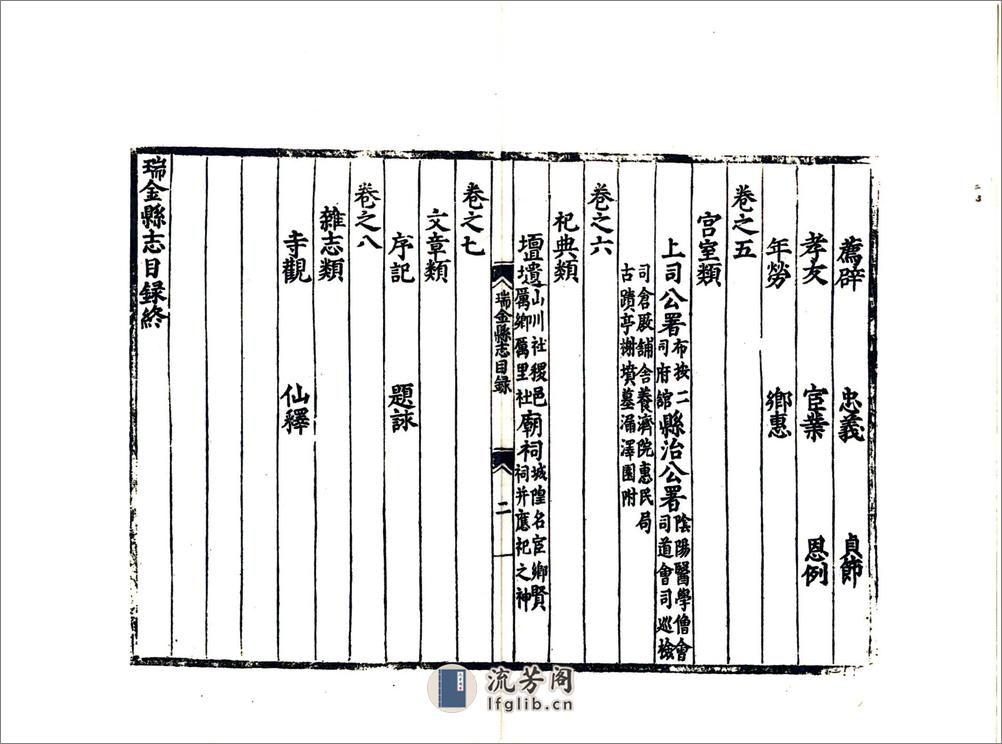 薦辟　忠義　貞節
孝友　宦業　恩例
年勞　鄉惠
卷之五
宫室類
上司公署布按二司府館縣治公署陰陽醫學僧會司道會司巡檢
司倉厫舖舍養濟院惠民局
古蹟亭榭墳墓漏澤園附
卷之六
祀典類
壇壝山川社稷邑厲鄉厲里社廟祠城隍名宦鄉賢祠并應祀之神
瑞金縣志目録
二
卷之七
文章類
序記　題詠
卷之八
雜志類
寺觀　仙釋
瑞金縣志目録終
流芳阁
lfglib.cn